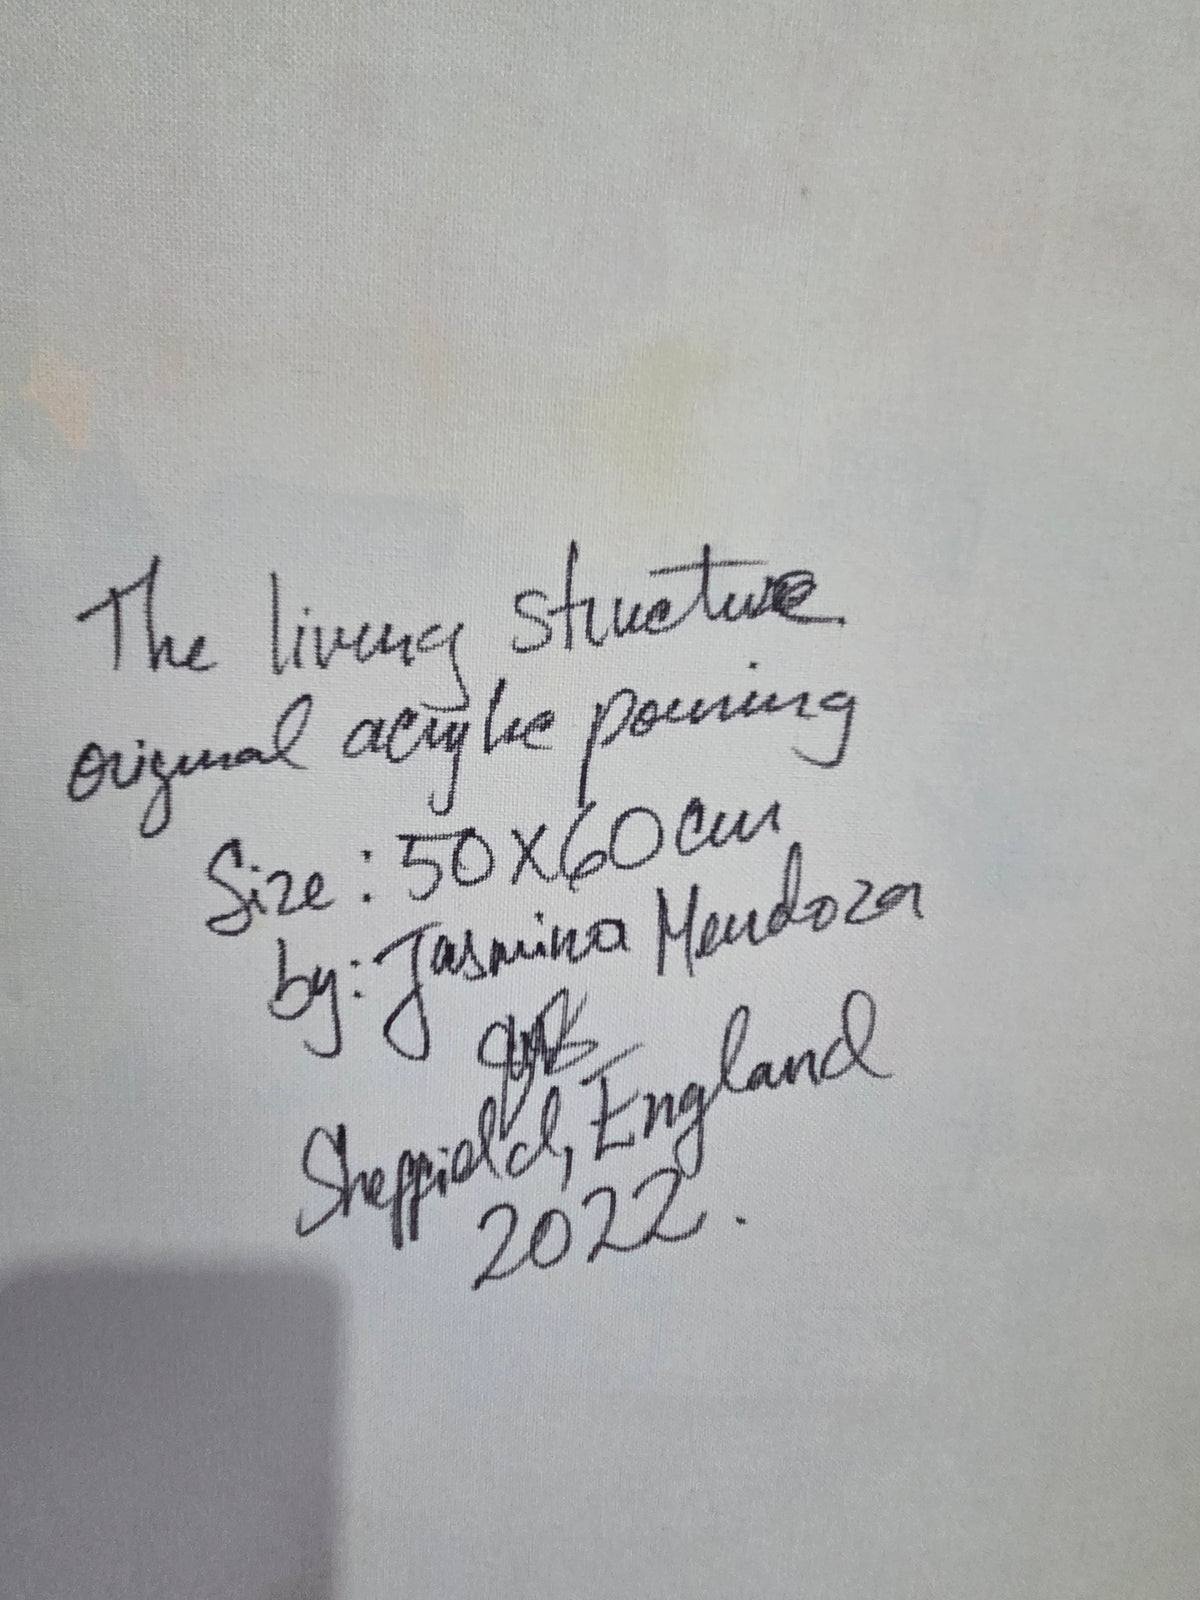 The living structure
original acrylic pouring
Size: 50x60cm
by: Jasmina Mendoza
Sheffield, England
2022.